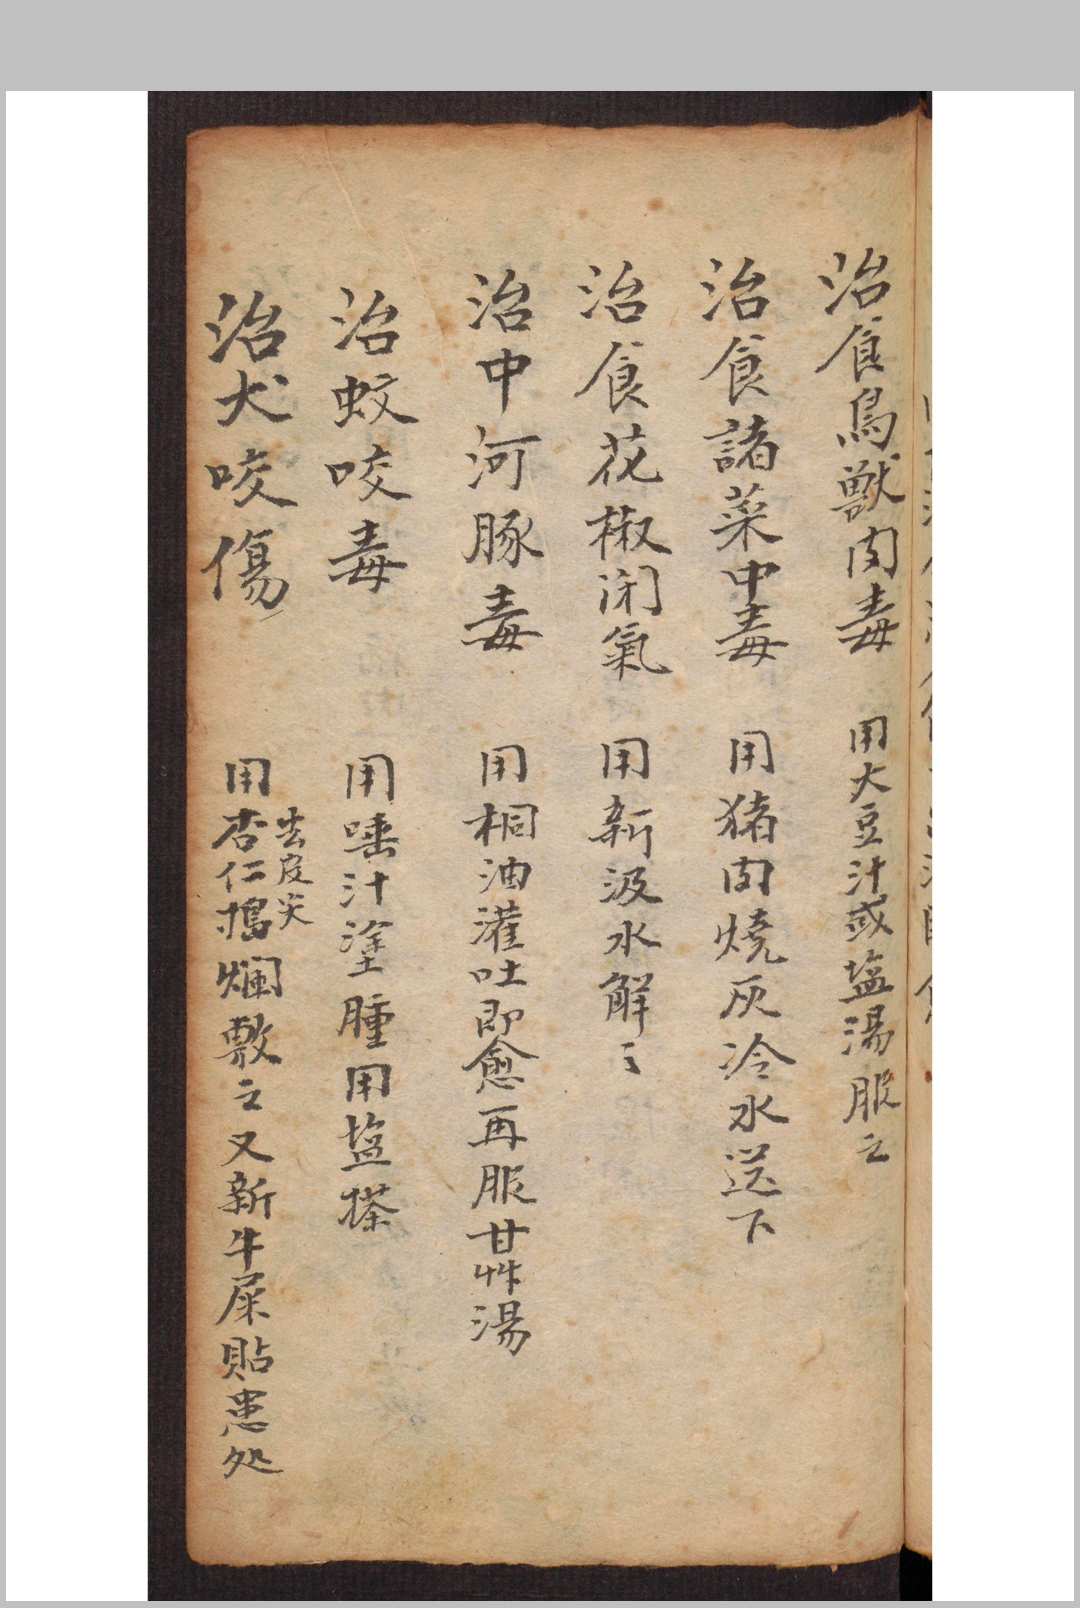 治食鳥獸肉毒 用大豆汁或塩湯服之
治食諸菜中毒 用猪肉燒灰冷水送下
治食花椒闭氣 用新汲水解之
治中河豚毒 用桐油灌吐即愈再服甘艸湯
治蚊咬毒 用唾汁塗腫用塩搽
治犬咬傷 用杏仁去皮尖搗爛敷之又新牛屎貼患処